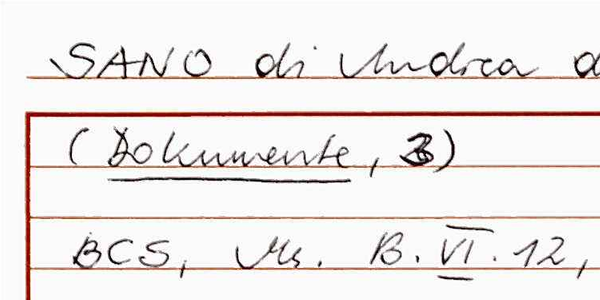 SANO di Andrea
(Dokumente, 3)
BCS, Ms. B. VI. 12,